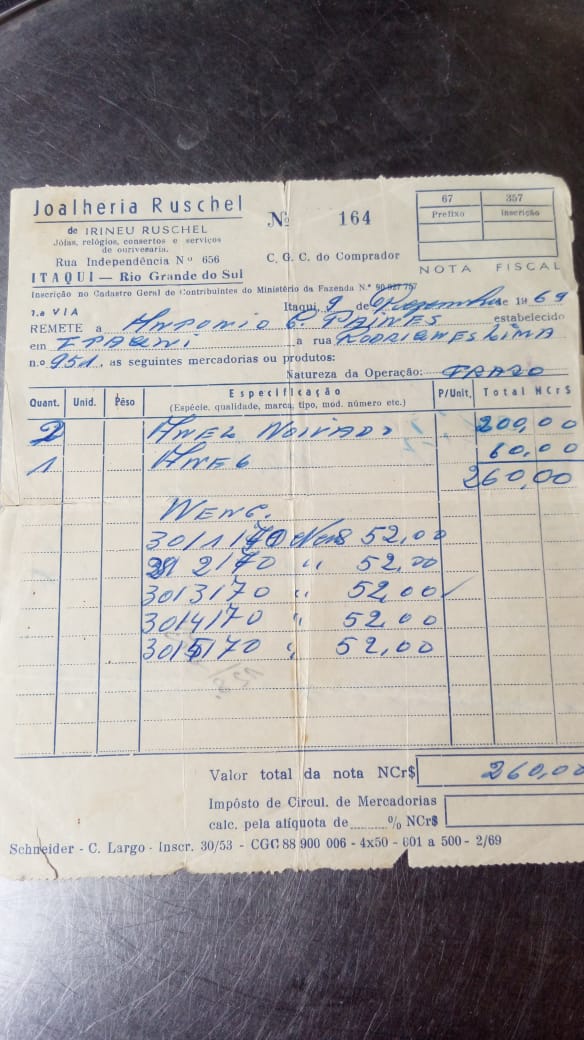 Joalheria Ruschel
de IRINEU RUSCHEL
Jóias, relógios, consertos e serviços
de ourivesaria.
Rua Independência Nº 656
ITAQUI — Rio Grande do Sul
Nº 164
C. G. C. do Comprador
67 357
Prefixo Inscrição
NOTA FISCAL
Inscrição no Cadastro Geral de Contribuintes do Ministério da Fazenda N.º 90 927 757
1.a VIA Itaqui, 9 de Dezembro de 1969
REMETE a Antonio PAINES estabelecido
em ITAQUI a rua RODRIGUES LIMA
n.o 951, as seguintes mercadorias ou produtos:
Natureza da Operação: PRAZO
Quant. Unid. Pêso Especificação P/Unit. Total NCr$
(Espécie, qualidade, marca, tipo, mod. número etc.)
2 ANEL NOIVADO 200,00
1 ANEL 60,00
260,00
VENC.
30/1/70 NCr$ 52,00
2/70 " 52,00
30/3/70 " 52,00
30/4/70 " 52,00
30/5/70 " 52,00
Valor total da nota NCr$ 260,00
Impôsto de Circul. de Mercadorias
calc. pela alíquota de ........% NCr$
Schneider - C. Largo - Inscr. 30/53 - CGC 88 900 006 - 4x50 - 601 a 500 - 2/69